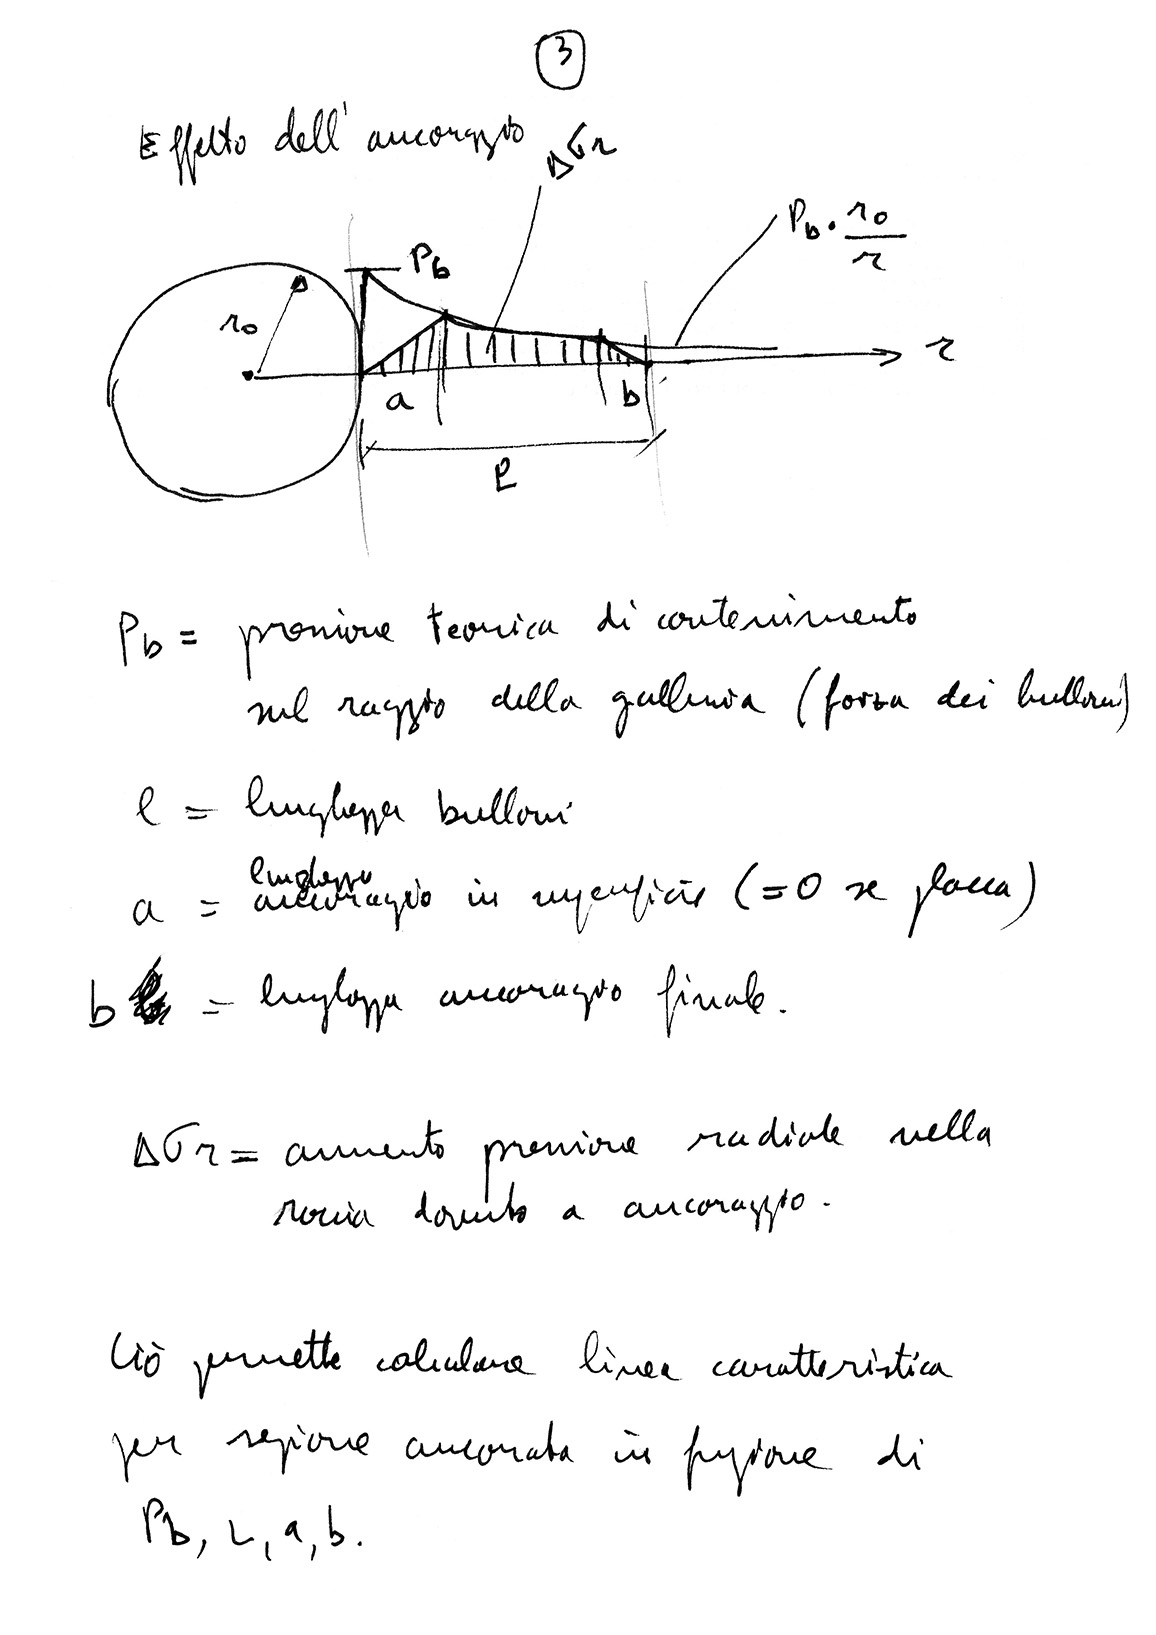 3
Effetto dell'ancoraggio
Δσr
Pb
Pb · r0/r
r0
r
a
b
l
Pb = pressione teorica di contenimento
sul raggio della galleria (forza dei bulloni)
l = lunghezza bulloni
lunghezza
a = ancoraggio in superficie (=0 se placca)
b = lunghezza ancoraggio finale.
Δσr = aumento pressione radiale nella
roccia dovuto a ancoraggio.
Ciò permette calcolare linea caratteristica
per regione ancorata in funzione di
Pb, L, a, b.